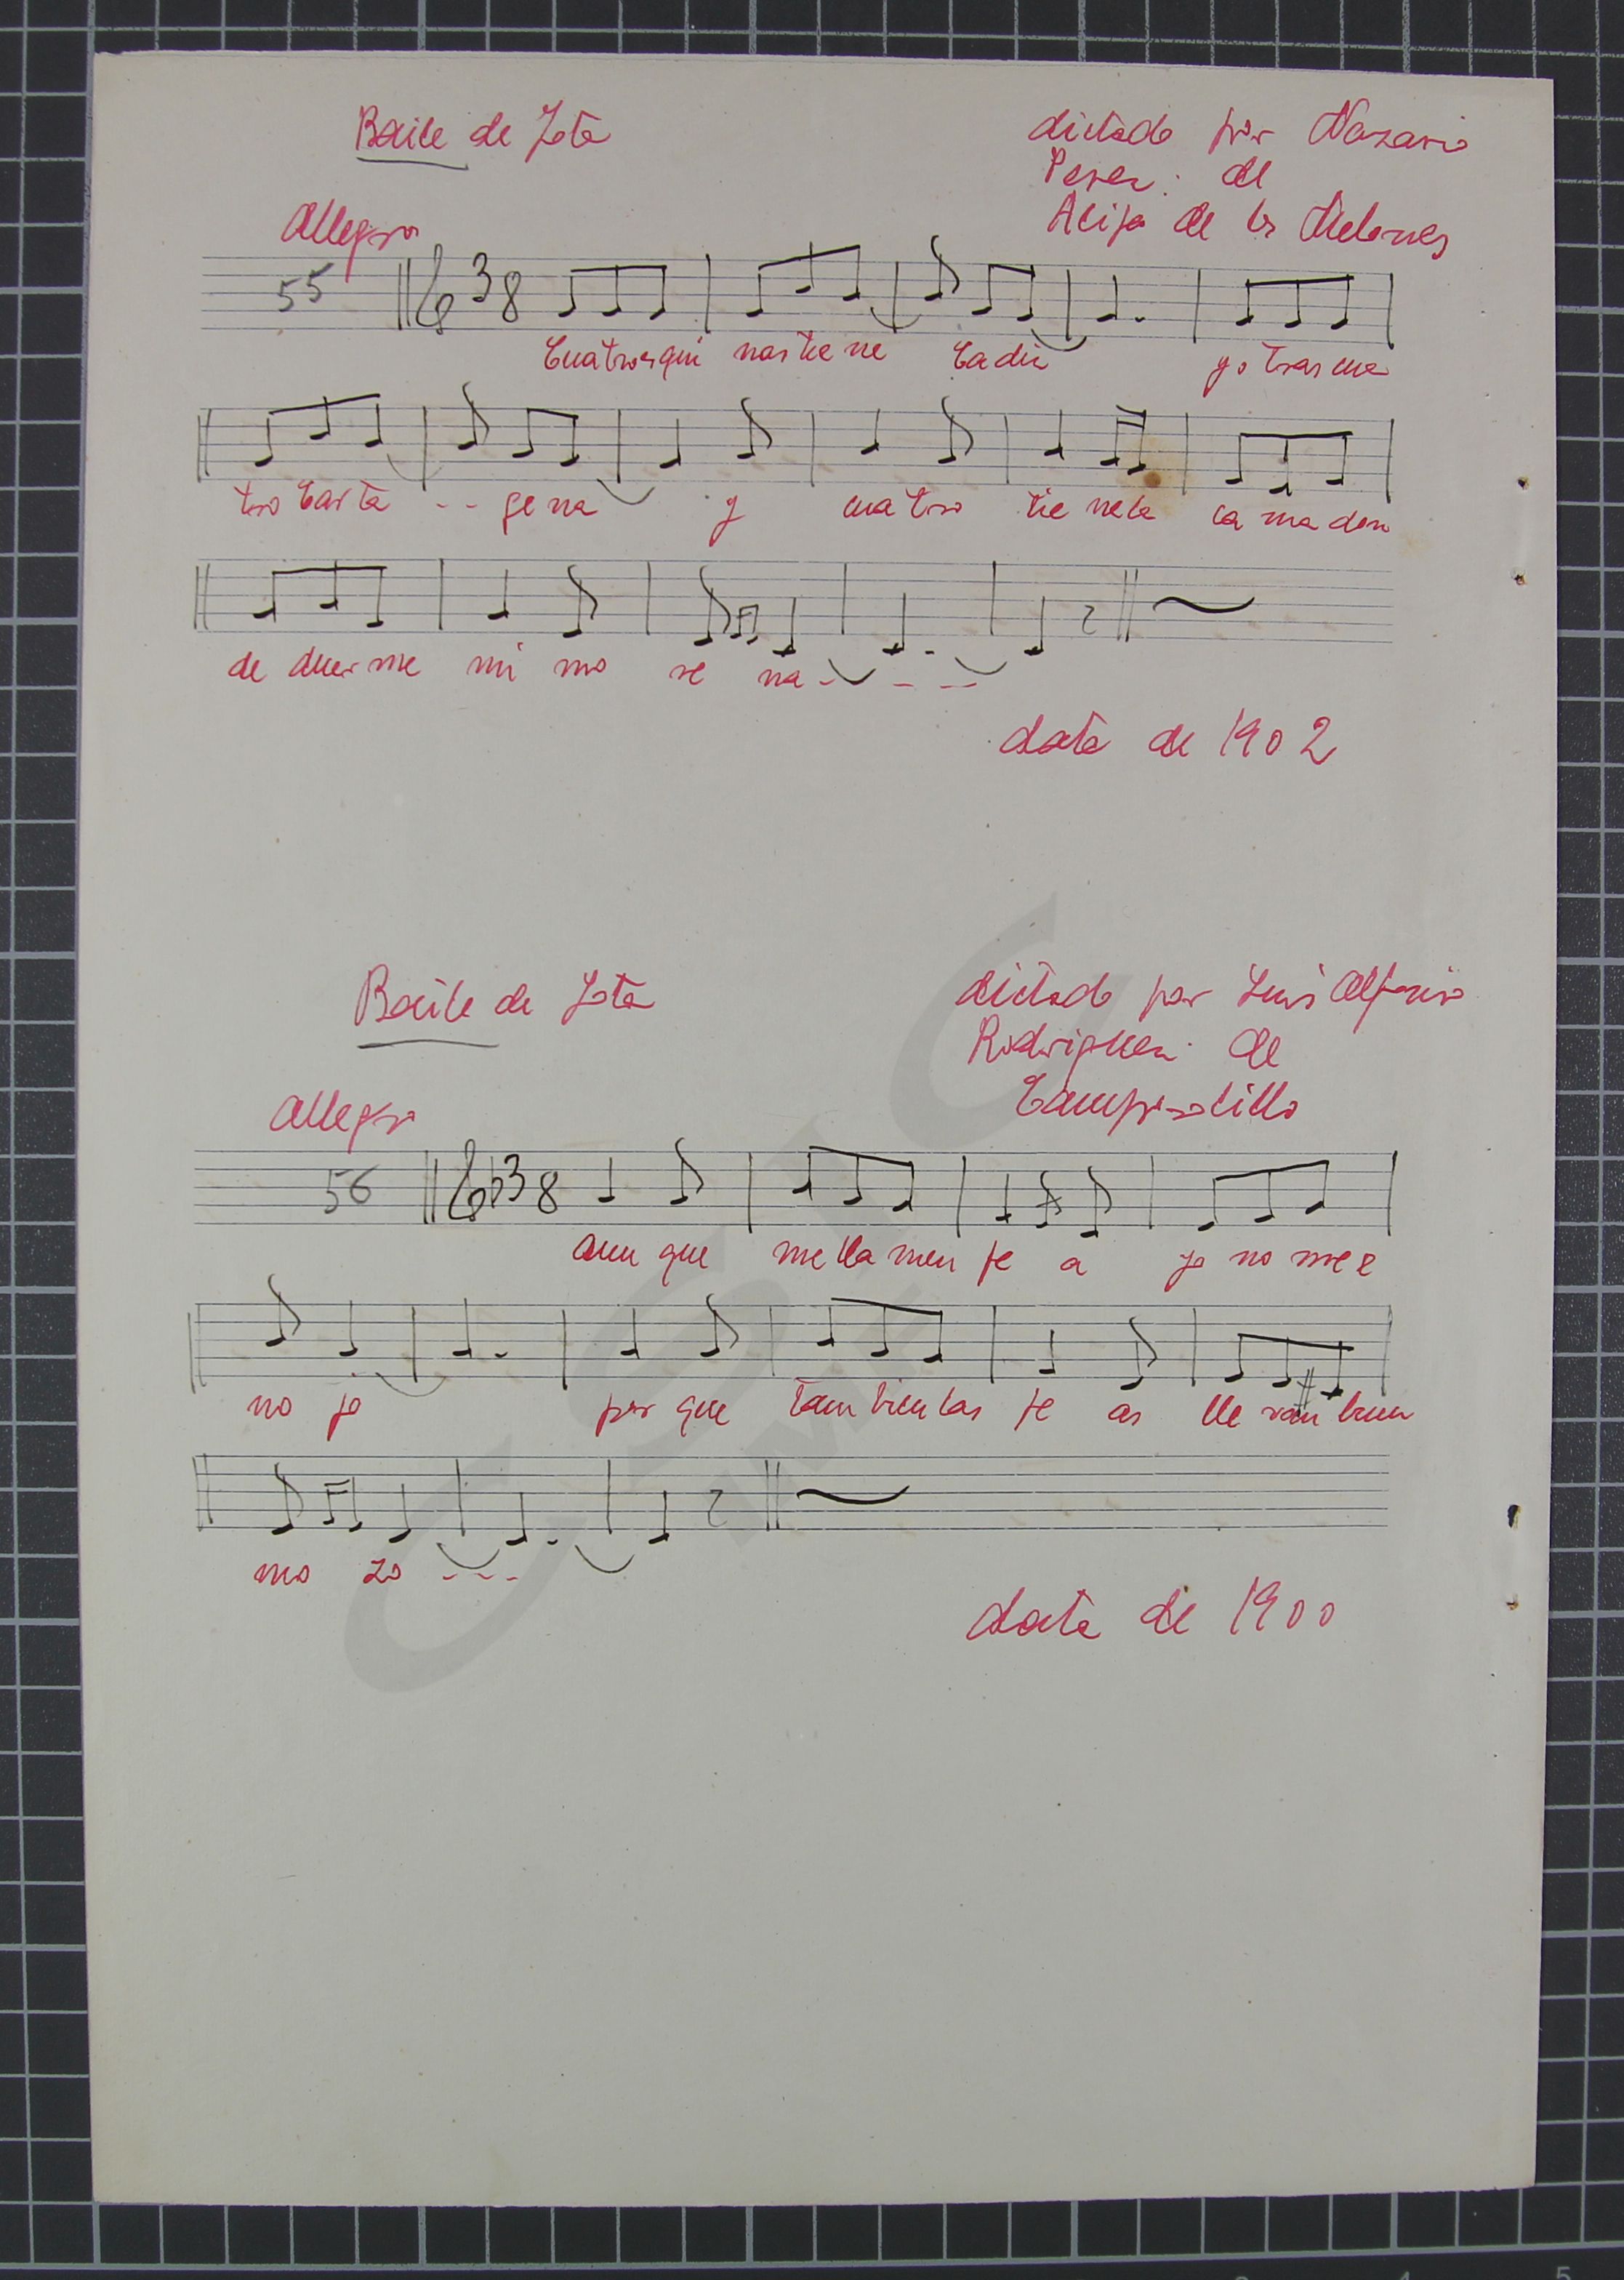 Baile de Jota
dictado por Nazario
Perez: de
Alija de los Melones
Allegro
55 3 8
Cuatroesqui nastiene Cadiz yotrascua
troCarta - - gena y cuatro tienela camadon
de duerme mi mo re na - - -
data de 1902
Baile de Jota
dictado por Luis Alfonso
Rodriguez: de
Campo
Allegro
56 3 8
Aun que mellamen fe a yo no mee
no jo por que tambienlas fe as lle van buen
mo zo - - -
data de 1900
CSIC
IMF